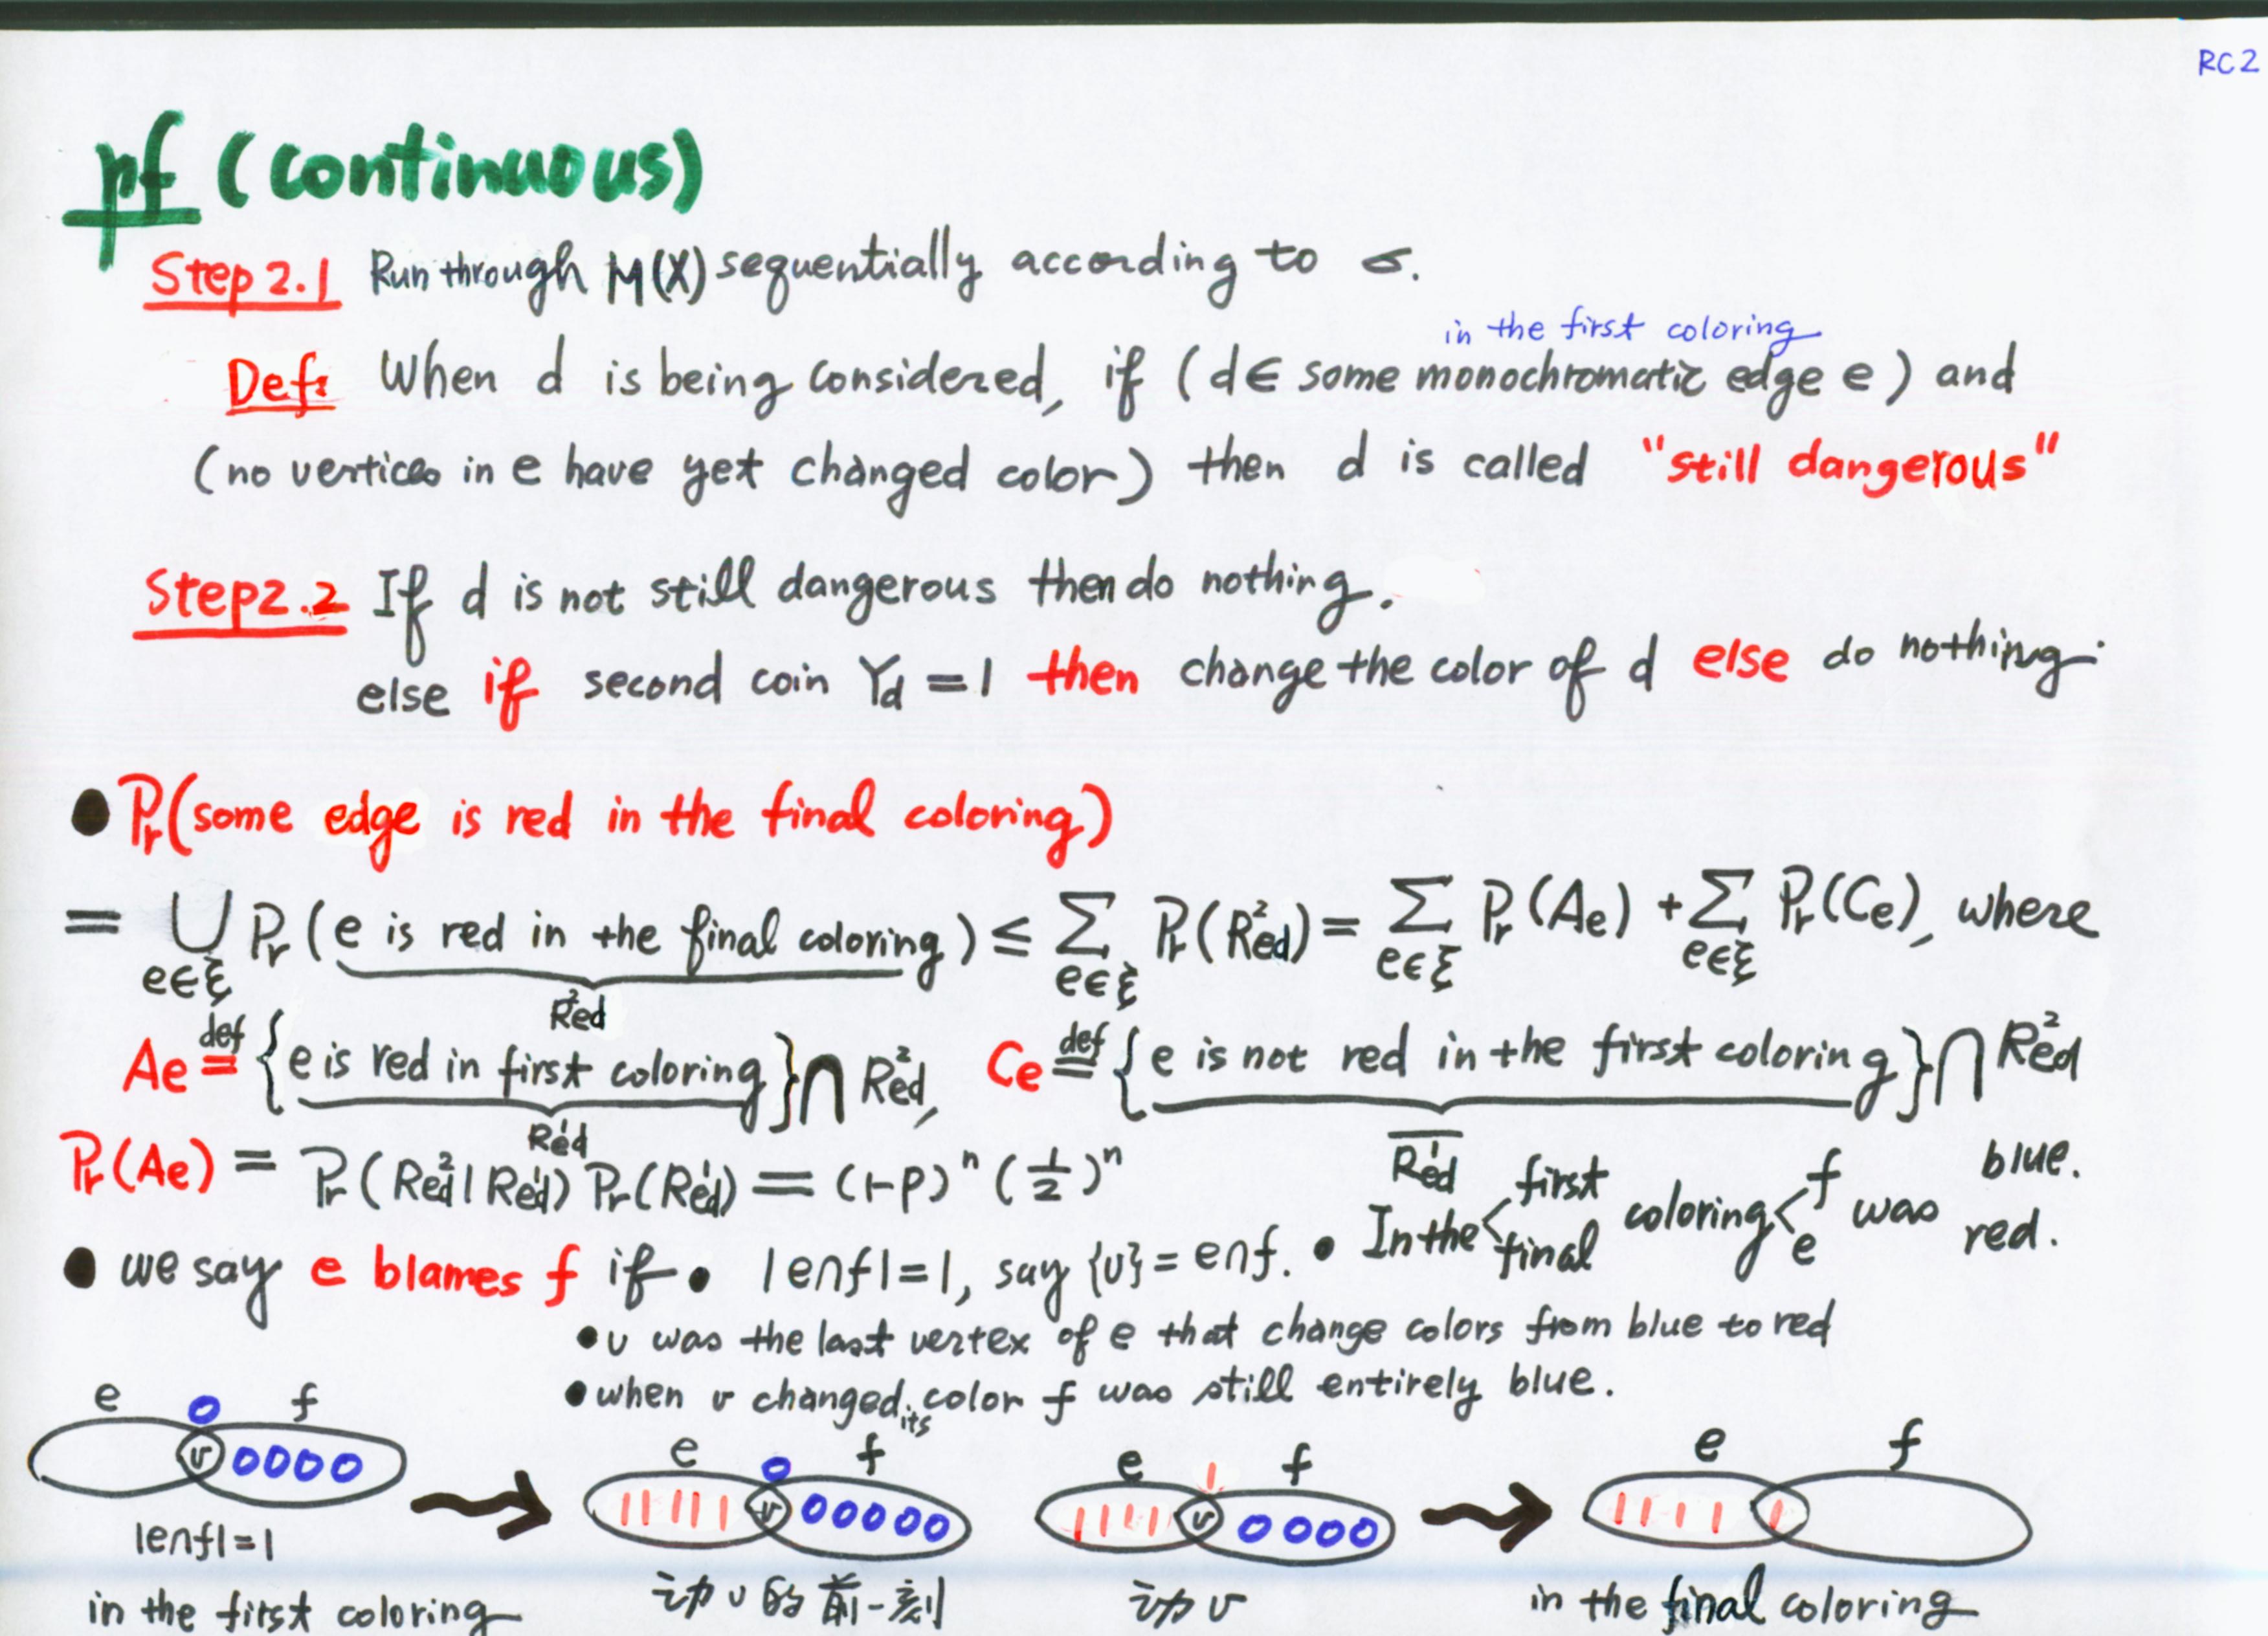 RC2
pf (continuous)
Step 2.1 Run through M(X) sequentially according to σ.
in the first coloring
Def: When d is being considered, if (d∈ some monochromatic edge e) and
(no vertices in e have yet changed color) then d is called "still dangerous"
Step2.2 If d is not still dangerous then do nothing.
else if second coin Yd = 1 then change the color of d else do nothing.
● Pr(some edge is red in the final coloring)
= ⋃_{e∈ξ} Pr(e is red in the final coloring) ≤ ∑_{e∈ξ} Pr(R²ed) = ∑_{e∈ξ} Pr(Ae) + ∑_{e∈ξ} Pr(Ce), where
R²ed
Ae ≝ {e is red in first coloring} ⋂ R²ed, Ce ≝ {e is not red in the first coloring} ⋂ R²ed
R¹ed
Pr(Ae) = Pr(R²ed | R¹ed) Pr(R¹ed) = (1-p)ⁿ (1/2)ⁿ
\overline{R¹ed}
● we say e blames f if • |e∩f|=1, say {v} = e∩f. • In the < first final coloring < f e was blue. red.
• v was the last vertex of e that change colors from blue to red
• when v changed its color f was still entirely blue.
e f
v
|e∩f|=1
in the first coloring
e f
v
动v的前一刻
e f
v
动v
e f
in the final coloring